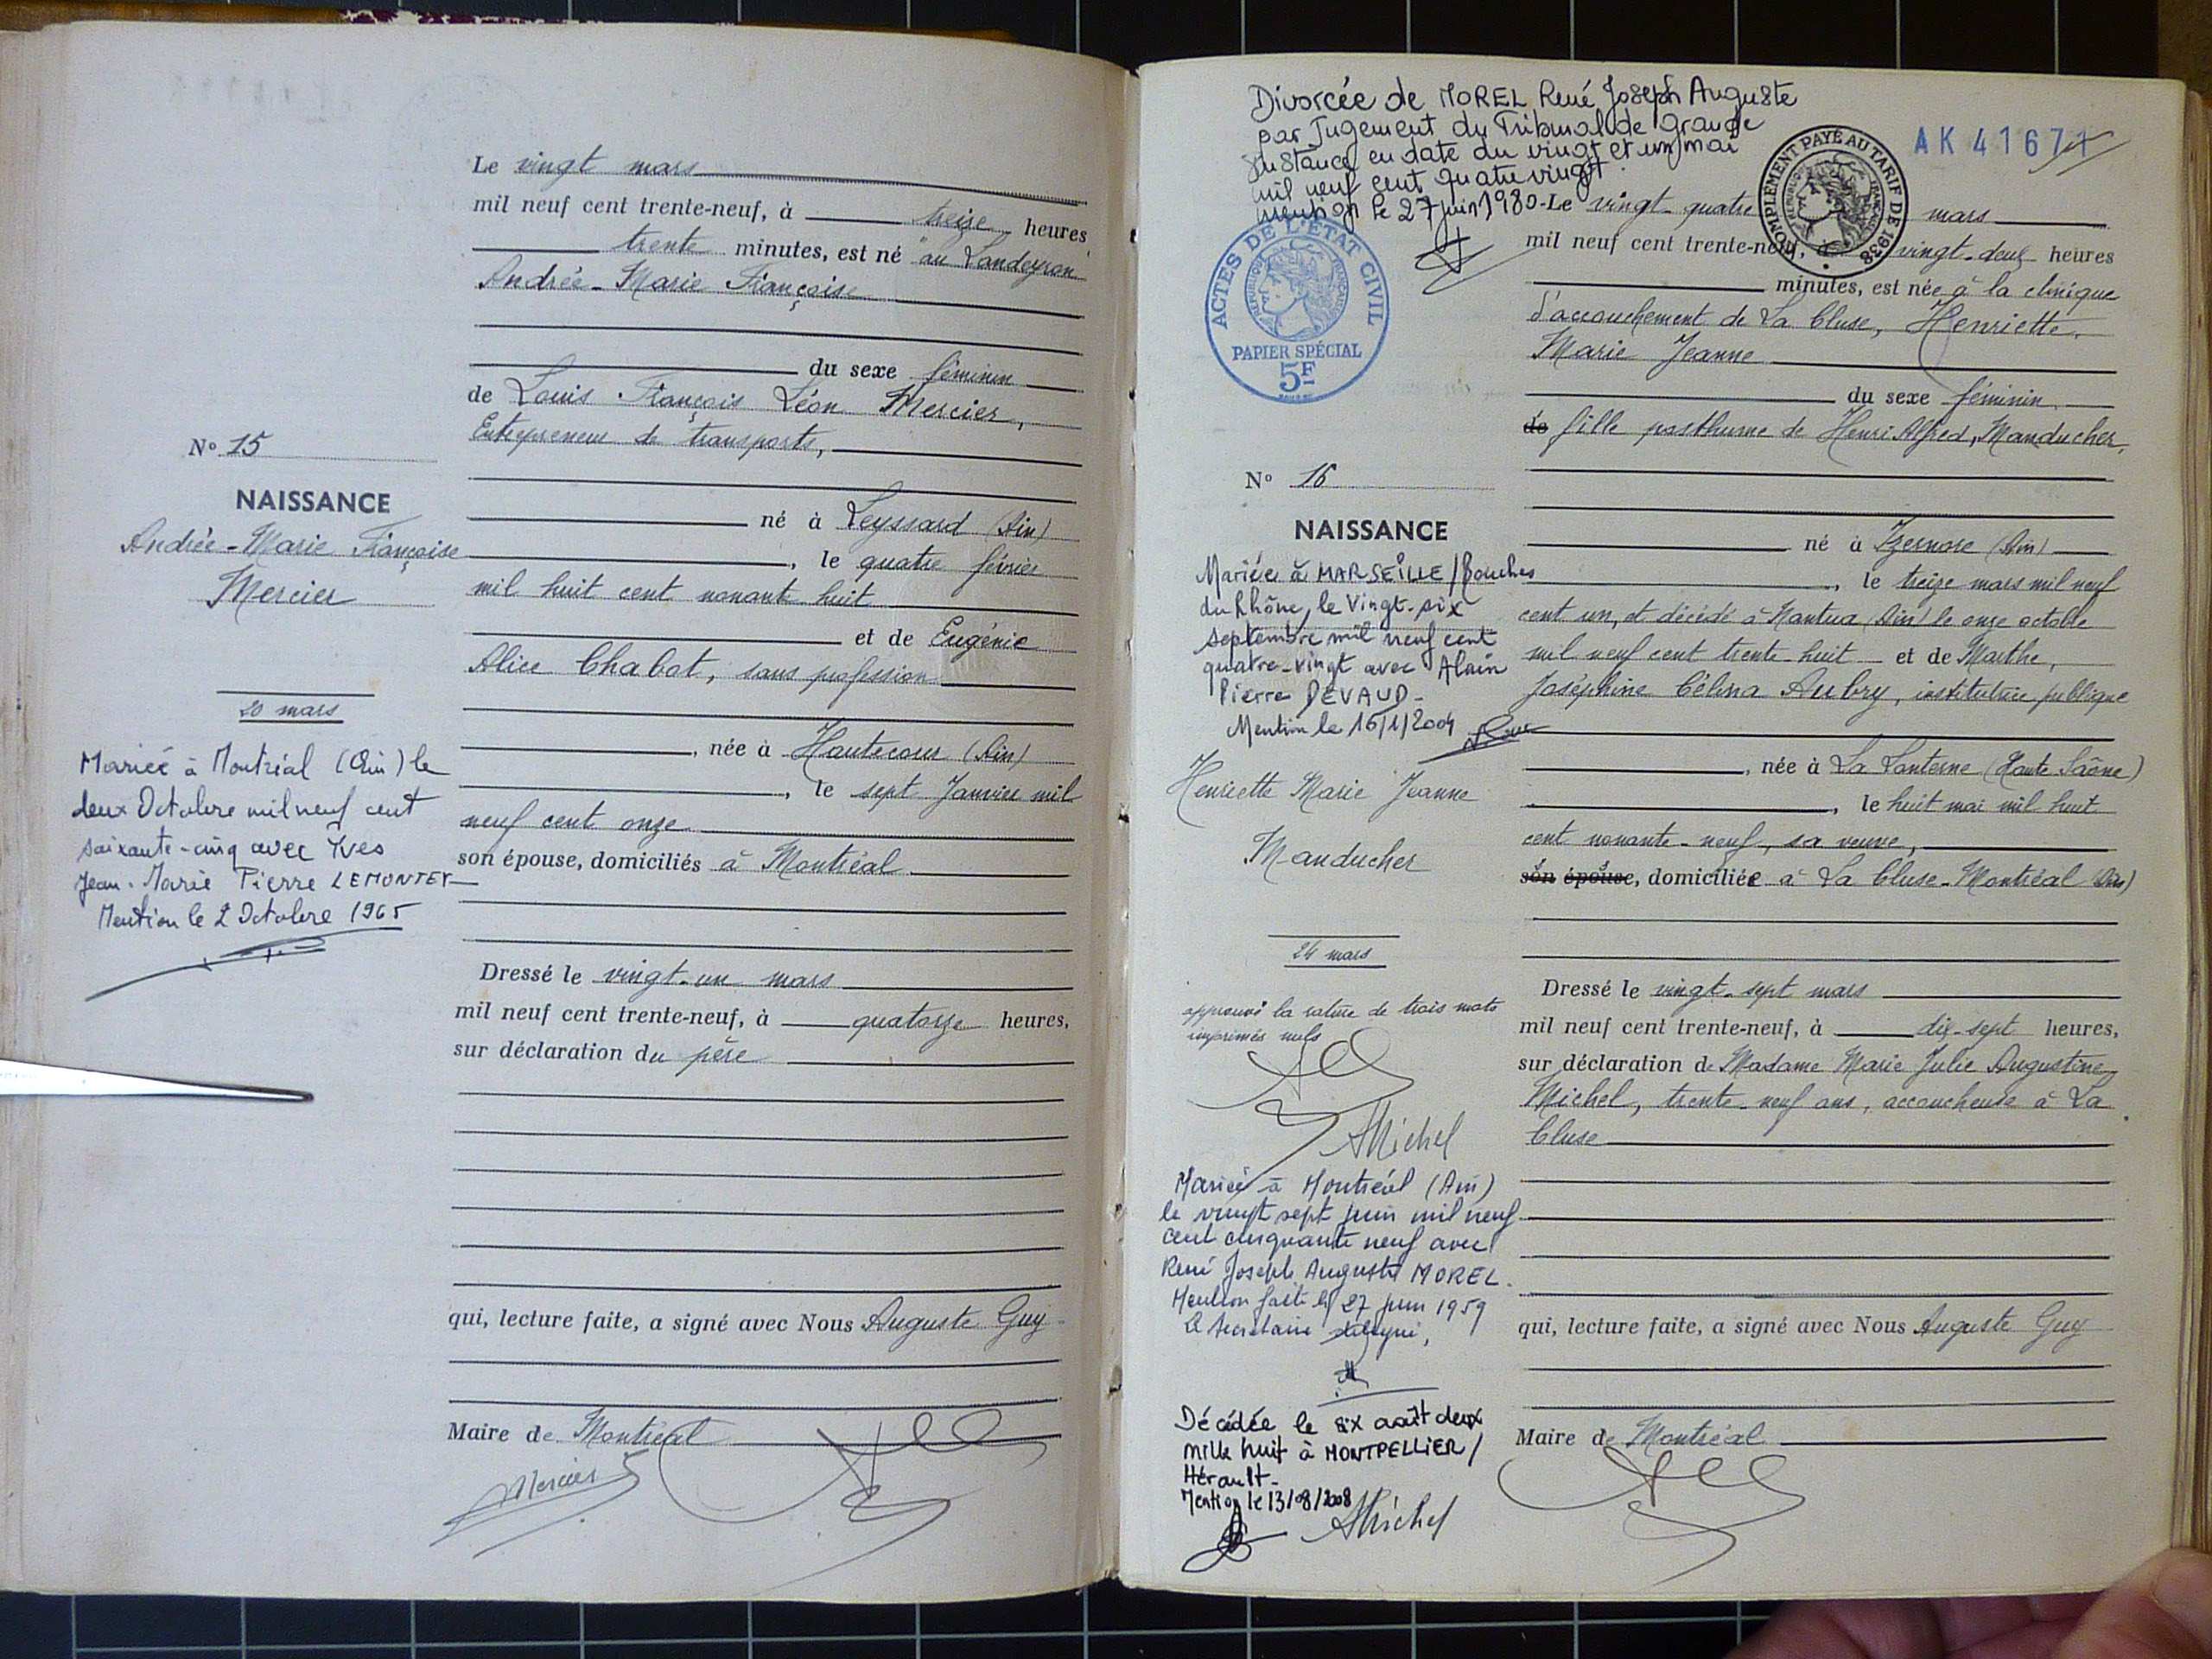 Le vingt mars
mil neuf cent trente-neuf, à treize heures
trente minutes, est né "au Landeyron"
Andrée-Marie Françoise
du sexe féminin
de Louis François Léon Mercier,
Entrepreneur de transports,
né à Leyssard (Ain)
, le quatre février
mil huit cent nonante huit
et de Eugénie
Alice Chabot, sans profession
, née à Hautecour (Ain)
, le sept Janvier mil
neuf cent onze
son épouse, domiciliés à Montréal
Dressé le vingt-un mars
mil neuf cent trente-neuf, à quatorze heures,
sur déclaration du père
qui, lecture faite, a signé avec Nous Auguste Guy
Maire de Montréal
Mercier
No 15
NAISSANCE
Andrée-Marie Françoise
Mercier
20 mars
Mariée à Montréal (Ain) le
deux Octobre mil neuf cent
soixante-cinq avec Yves
Jean-Marie Pierre LEMONTEY
Mention le 2 Octobre 1965
Divorcée de MOREL René Joseph Auguste
par Jugement du Tribunal de Grande
Instance en date du vingt et un mai
mil neuf cent quatre vingt
mention le 27 juin 1980-
AK 41671
COMPLÉMENT PAYÉ AU TARIF DE 1938
RÉPUBLIQUE FRANÇAISE
ACTES DE L'ÉTAT CIVIL
RÉPUBLIQUE FRANÇAISE
PAPIER SPÉCIAL
5F
Le vingt-quatre mars
mil neuf cent trente-neuf, à vingt-deux heures
minutes, est née à la clinique
d'accouchement de La Cluse, Henriette,
Marie Jeanne
du sexe féminin
de fille posthume de Henri Alfred, Manducher,
né à Izernore (Ain)
, le treize mars mil neuf
cent un, et décédé à Nantua (Ain) le onze octobre
mil neuf cent trente-huit et de Marthe,
Joséphine Célina Aubry, institutrice publique
, née à La Lanterne (Haute Saône)
, le huit mai mil huit
cent nonante-neuf, sa veuve,
son épouse, domiciliée à La Cluse-Montréal (Ain)
Dressé le vingt-sept mars
mil neuf cent trente-neuf, à dix-sept heures,
sur déclaration de Madame Marie Julie Augustine
Michel, trente-neuf ans, accoucheuse à La
Cluse
qui, lecture faite, a signé avec Nous Auguste Guy
Maire de Montréal
No 16
NAISSANCE
Mariée à MARSEILLE/Bouches
du Rhône, le Vingt-six
septembre mil neuf cent
quatre-vingt avec Alain
Pierre DEVAUD-
Mention le 16/1/2004
Henriette Marie Jeanne
Manducher
24 mars
approuvé la rature de trois mots
imprimés nuls
AMichel
Mariée à Montréal (Ain)
le vingt sept juin mil neuf
cent cinquante neuf avec
René Joseph Auguste MOREL.
Mention faite le 27 juin 1959
Le Secrétaire délégué,
Décédée le six août deux
mille huit à MONTPELLIER/
Hérault-
Mention le 13/08/2008
AMichel